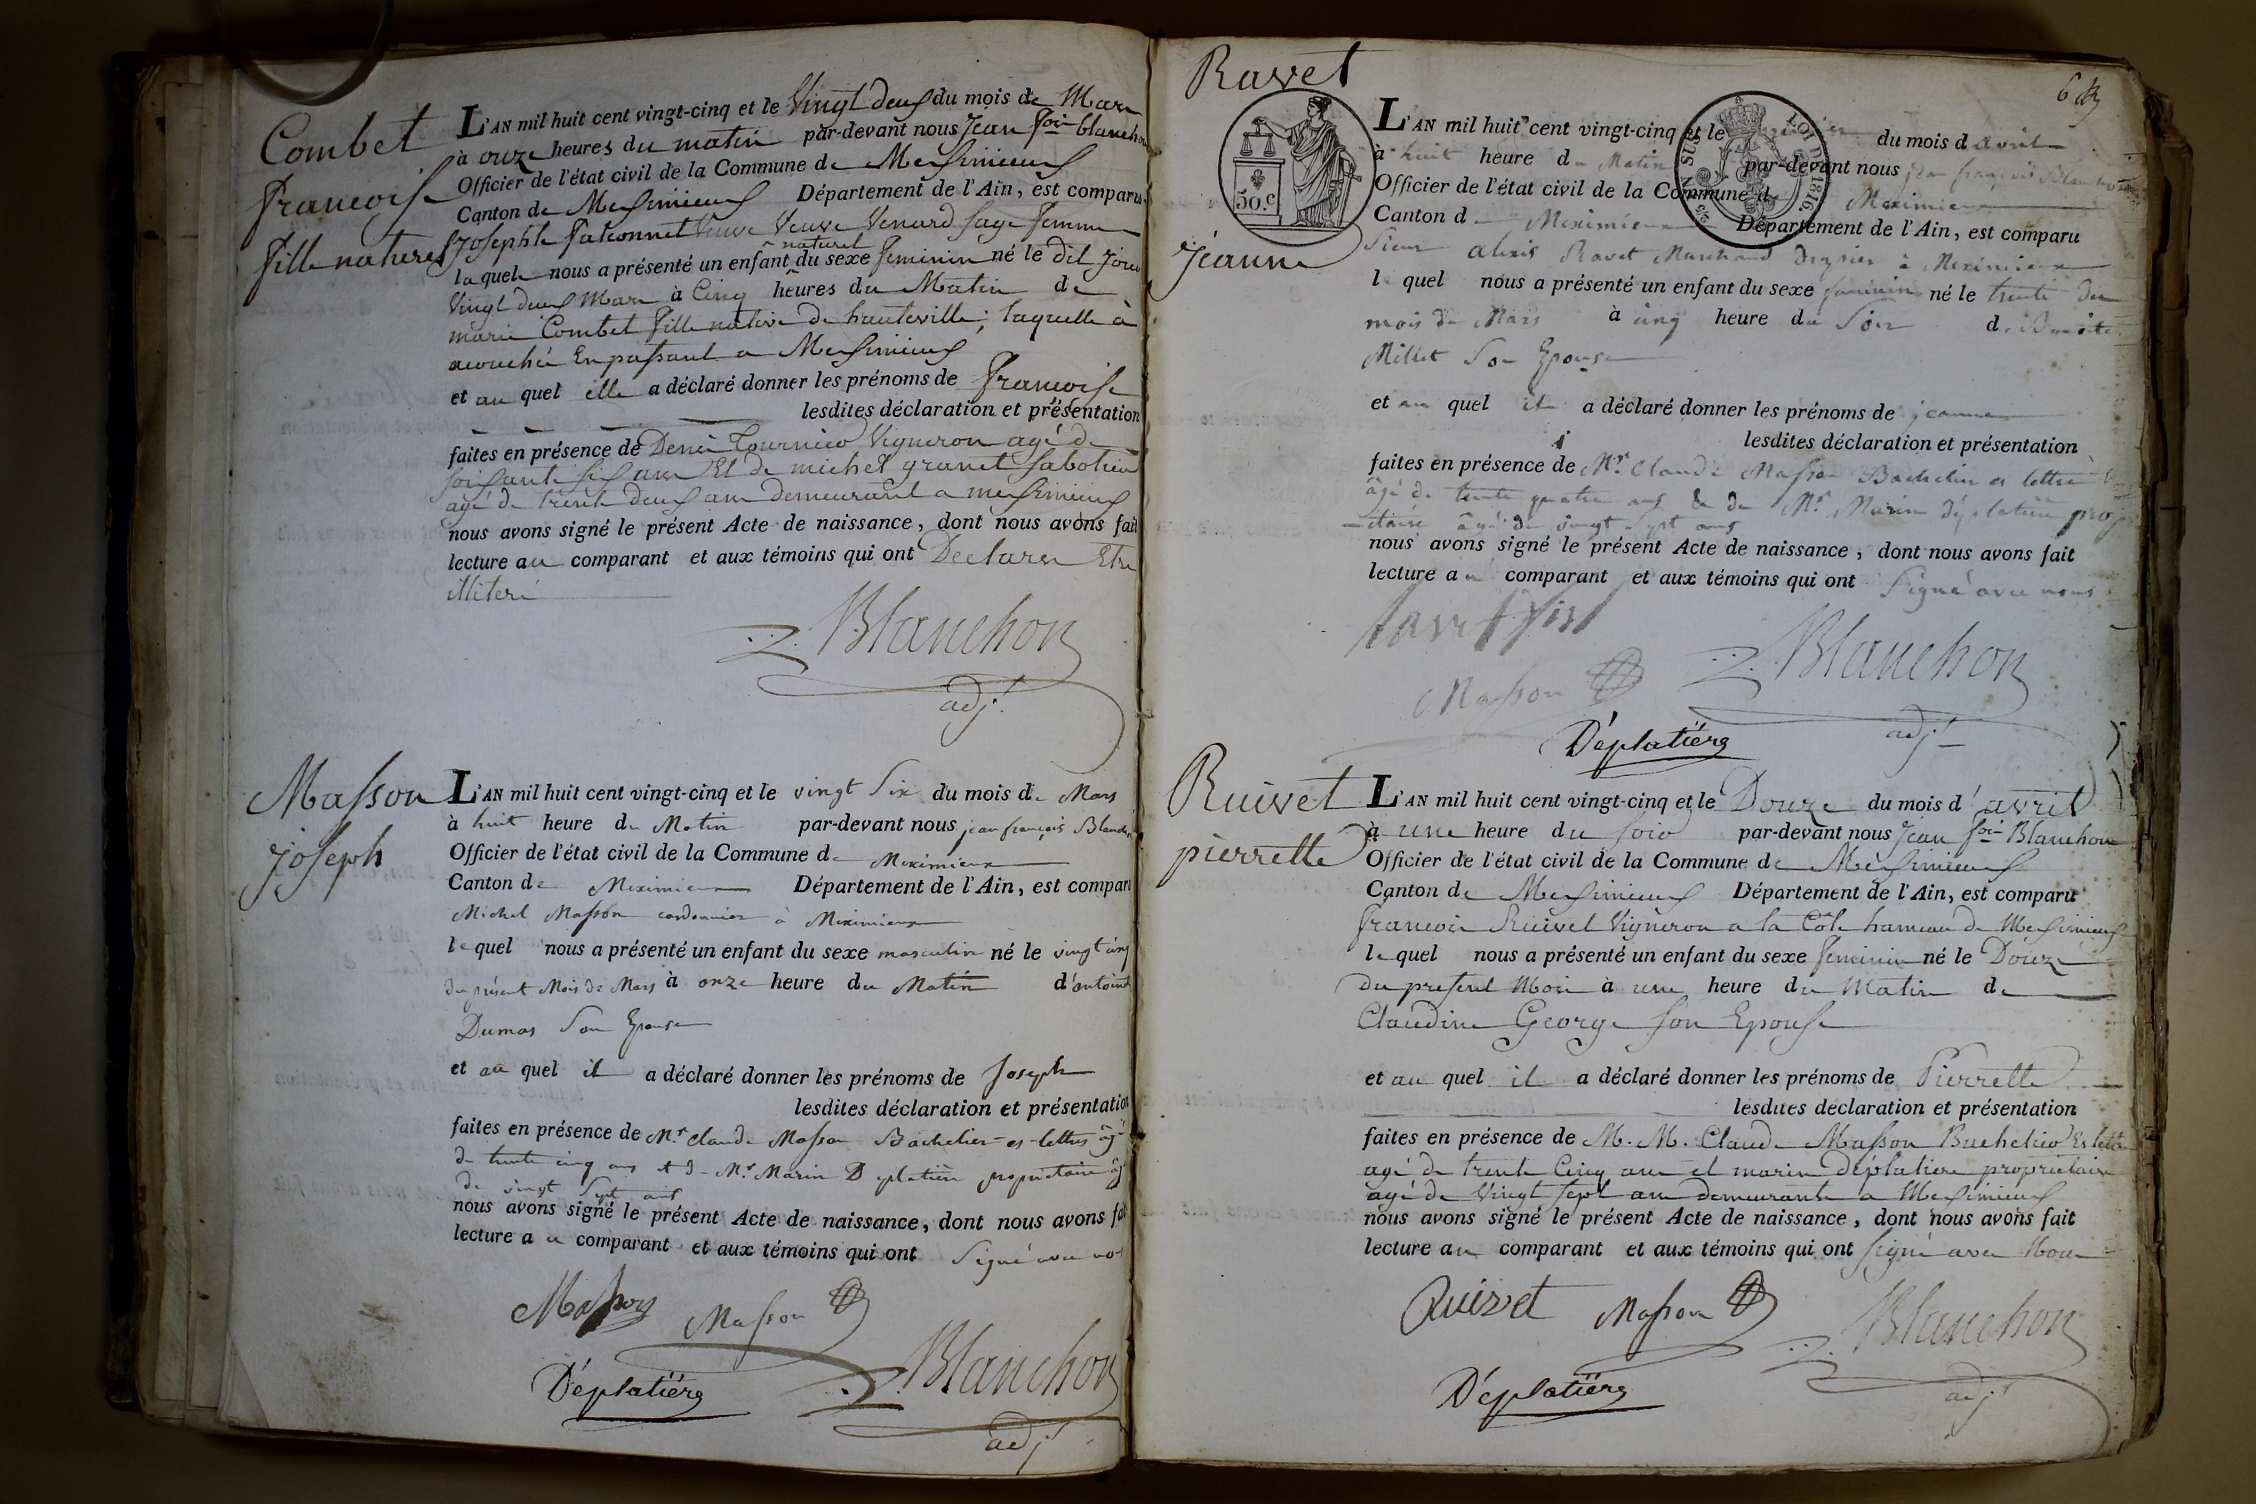 Combet
Francoise
fille naturel
L'AN mil huit cent vingt-cinq et le Vingt deux du mois de Mars
à onze heures du matin par-devant nous Jean fois blanchon
Officier de l'état civil de la Commune de Meximieux
Canton de Meximieux Département de l'Ain, est comparu
Josephte falconnet Veuve Venard sage femme
naturel
laquele nous a présenté un enfant du sexe feminin né le dit jour
Vingt deux Mars à Cinq heures du Matin de
marie Combet fille native de hauteville; laquelle à
acouchée En passant a Meximieux
et au quel elle a déclaré donner les prénoms de francoise
lesdites déclaration et présentation
faites en présence de Denis Tournier Vigneron agé de
soixante six ans Et de michel granet sabotier
agé de trente deux ans demeurant a meximieux
nous avons signé le présent Acte de naissance, dont nous avons fait
lecture au comparant et aux témoins qui ont Declarer Etre
illiteré
Blanchon
adj.t
Masson
joseph
L'AN mil huit cent vingt-cinq et le vingt six du mois de Mars
à huit heure du Matin par-devant nous jean françois Blanchon
Officier de l'état civil de la Commune de Meximieux
Canton de Meximieux Département de l'Ain, est comparu
Michel Masson cordonnier à Meximieux
lequel nous a présenté un enfant du sexe masculin né le vingt cinq
du présent Mois de Mars à onze heure du Matin d'antoinette
Dumas Son Epouse
et au quel il a déclaré donner les prénoms de Joseph
lesdites déclaration et présentation
faites en présence de Mr. Claude Masson Bachelier-es-lettres âgé
de trente cinq ans et de Mr. Marin Déplatière propriétaire âgé
de vingt sept ans
nous avons signé le présent Acte de naissance, dont nous avons fait
lecture au comparant et aux témoins qui ont Signé avec nous
Masson Masson
Déplatière Blanchon
adj.t
Ravet
jeanne
6
50.c
LOI DE 1816.
L'AN mil huit cent vingt-cinq et le premier du mois d avril
à huit heure du Matin par-devant nous jean françois Blanchon
Officier de l'état civil de la Commune de Meximieux
Canton d Meximieux Département de l'Ain, est comparu
Sieur alexis Ravet Marchand à Meximieux
lequel nous a présenté un enfant du sexe feminin né le trente du
mois de Mars à cinq heure du Soir de Benoite
Millet Son Epouse
et au quel il a déclaré donner les prénoms de jeanne
lesdites déclaration et présentation
faites en présence de Mr. Claude Masson Bachelier es lettres
âgé de trente quatre ans & de Mr. Marin déplatière propri
-étaire âgé de vingt sept ans
nous avons signé le présent Acte de naissance, dont nous avons fait
lecture au comparant et aux témoins qui ont Signé avec nous
Masson Blanchon
Déplatière adj.t
Ruivet
pierrette
L'AN mil huit cent vingt-cinq et le Douze du mois d'avril
à une heure du soir par-devant nous Jean fois Blanchon
Officier de l'état civil de la Commune de Meximieux
Canton de Meximieux Département de l'Ain, est comparu
francois Ruivet Vigneron a la Côte hameau de Meximieux
lequel nous a présenté un enfant du sexe feminin né le Douze
du present Mois à une heure du Matin de
Claudine George son Epouse
et au quel il a déclaré donner les prénoms de Pierrette
lesdites déclaration et présentation
faites en présence de M. M. Claude Masson Bachelier Es lettre
agé de trente Cinq ans et marin déplatiere propriétaire
agé de Vingt sept ans demeurants a Meximieux
nous avons signé le présent Acte de naissance, dont nous avons fait
lecture au comparant et aux témoins qui ont signé avec Nous
Ruivet Masson Blanchon
Déplatière adj.t